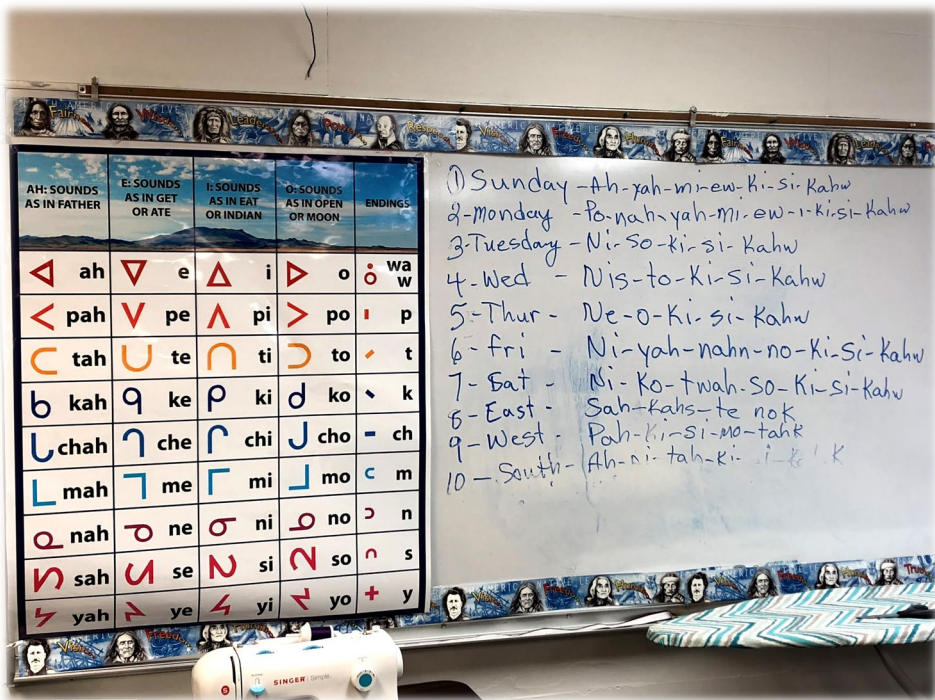 AH: SOUNDS AS IN FATHER
E: SOUNDS AS IN GET OR ATE
I: SOUNDS AS IN EAT OR INDIAN
O: SOUNDS AS IN OPEN OR MOON
ENDINGS
ᐊ ah ᐁ e ᐃ i ᐅ o ᐝ wa ᐤ w
ᐸ pah ᐯ pe ᐱ pi ᐳ po ᑊ p
ᑕ tah ᑌ te ᑎ ti ᑐ to ᐟ t
ᑲ kah ᑫ ke ᑭ ki ᑯ ko ᐠ k
ᒐ chah ᒉ che ᒋ chi ᒍ cho ᐨ ch
ᒪ mah ᒣ me ᒥ mi ᒧ mo ᒼ m
ᓇ nah ᓀ ne ᓂ ni ᓄ no ᐣ n
ᓴ sah ᓭ se ᓯ si ᓱ so ᐢ s
ᔭ yah ᔦ ye ᔨ yi ᔪ yo ᐩ y
1 Sunday - Ah-yah-mi-ew-Ki-si-Kahw
2-monday - Po-nah-yah-mi-ew-i-Ki-si-Kahw
3-Tuesday - Ni-so-ki-si-Kahw
4-Wed - Nis-to-Ki-si-Kahw
5-Thur - Ne-o-Ki-si-Kahw
6-fri - Ni-yah-nahn-no-Ki-Si-Kahw
7-Sat - Ni-Ko-twah-so-Ki-si-Kahw
8-East - Sah-Kahs-te nok
9-West - Pah-Ki-Si-mo-tahk
10 - South - Ah-ni-tah-Ki-
SINGER Simple